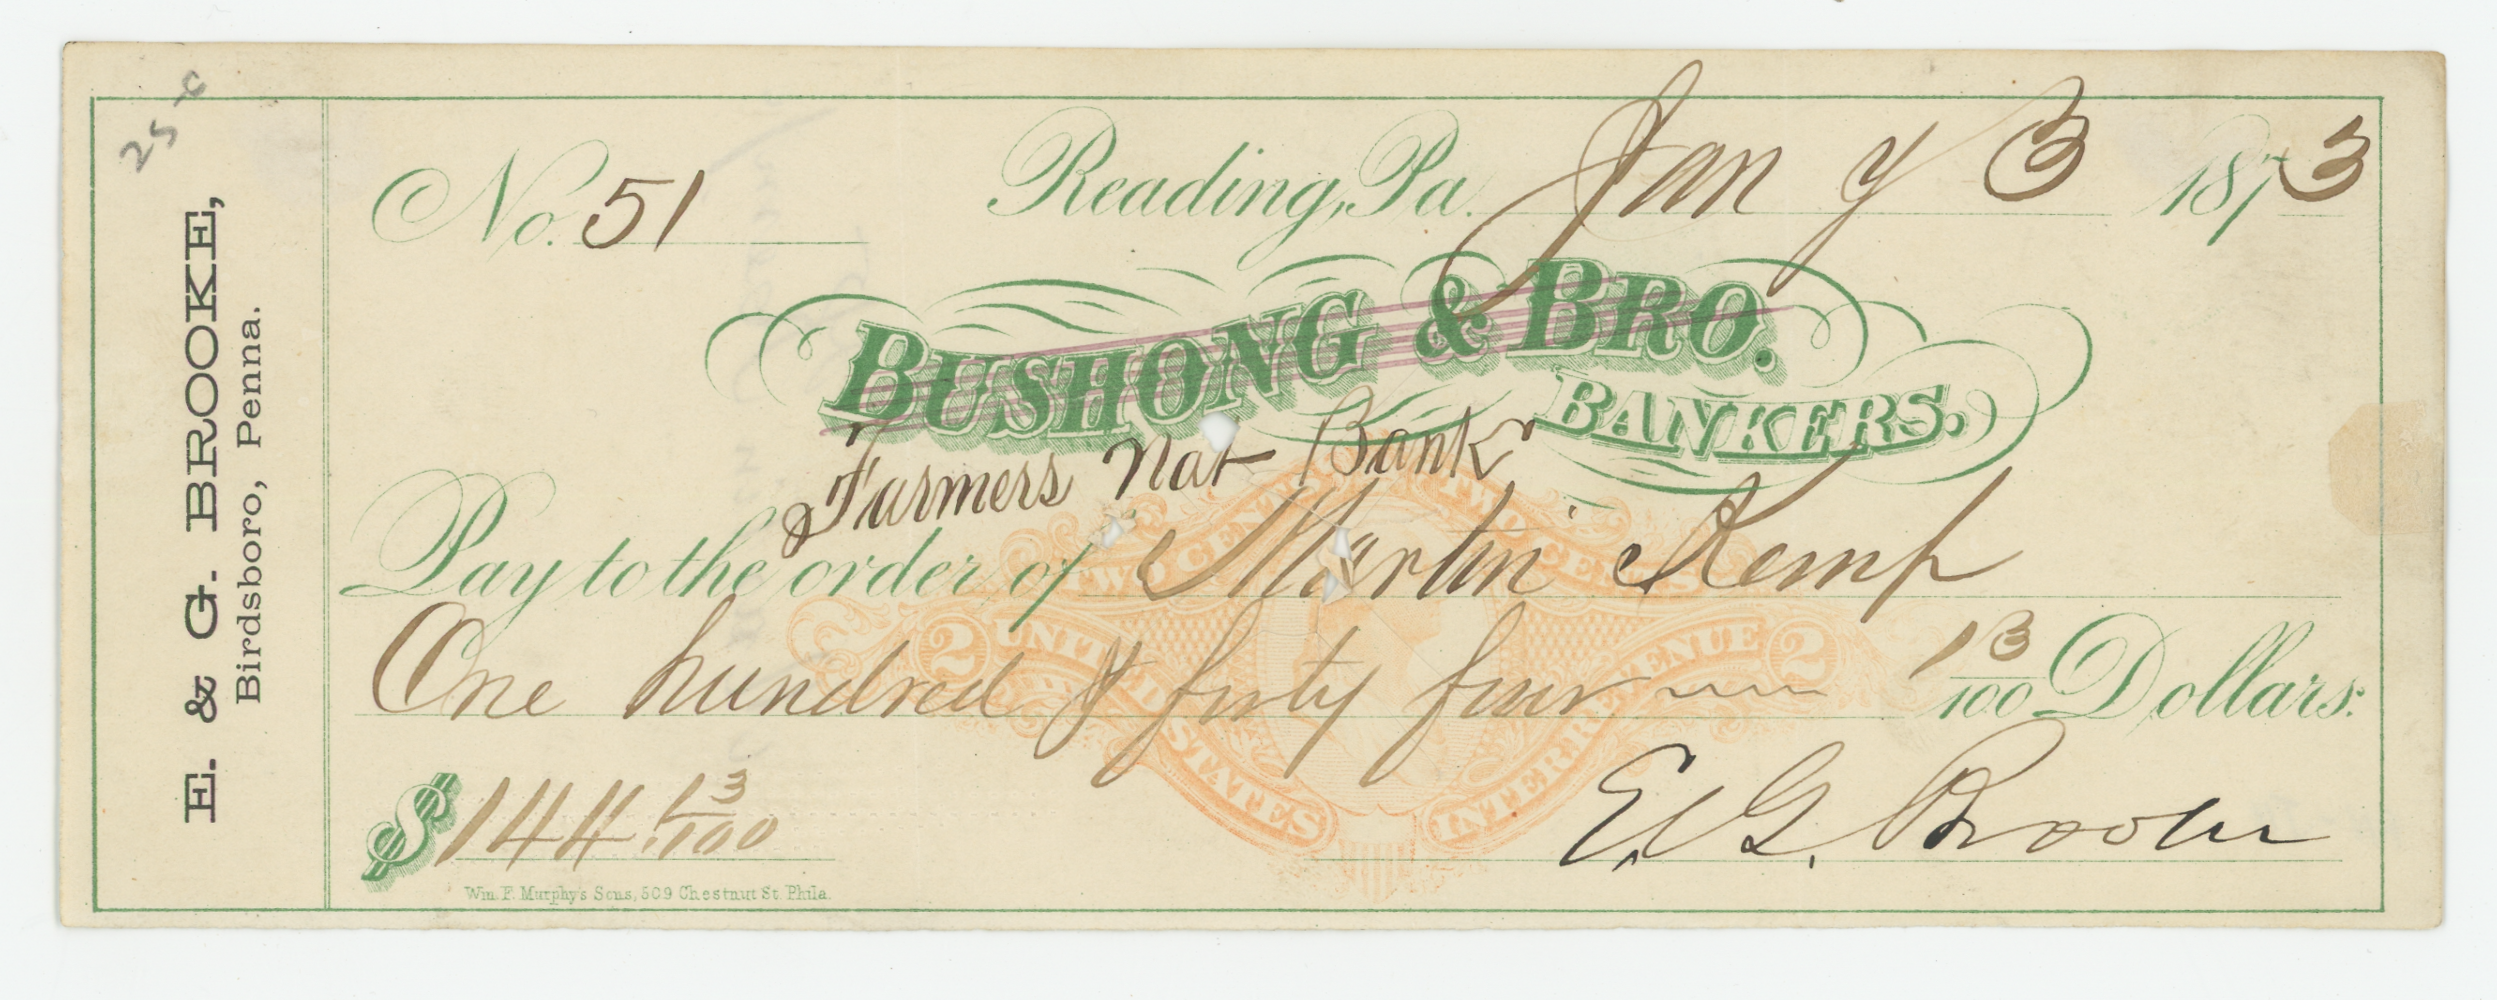 25¢
E. & G. BROOKE,
Birdsboro, Penna.
No. 51 Reading, Pa. Jany 3 1873
BUSHONG & BRO.
BANKERS.
Farmers Nat Bank
Pay to the order of Martin Kemp
One hundred & forty four 13/100 Dollars.
$144 13/100
E & G. Brooke
Wm. F. Murphy's Sons, 509 Chestnut St. Phila.
TWO CENTS TWO CENTS
2 UNITED STATES INTER. REVENUE 2